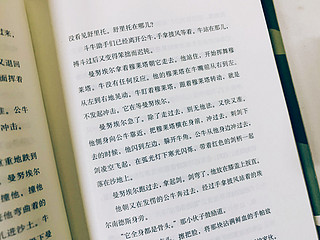 过来，
面挥着
公牛
直到
重地跌到
撞他，撞
他弯曲着的
乱进沙土。牛
没看见舒里托。舒里托在哪儿？
斗牛助手们已经离开公牛，手拿披风等着。牛站在那儿，
搏斗过后又变得笨拙而迟钝。
曼努埃尔拿着穆莱塔朝它走去。他站住，开始挥舞穆
莱塔，牛没有任何反应。他的穆莱塔在牛嘴前从右到左、
从左到右地晃动。牛盯着穆莱塔，跟着穆莱塔转动，就是
不发起冲击。它在等曼努埃尔。
曼努埃尔急了。除了走过去，别无他法。又快又准。
他侧身向公牛靠近，把穆莱塔横在身前，冲过去。刺剑下
去的时候，他闪到左边，躲开牛角。公牛从他身边冲过去，
剑凌空飞起，在弧光灯下寒光闪烁，带着红色的剑柄一起
落在沙地上。
曼努埃尔跑过去，拾起剑。剑弯了，他放在膝盖上扳直。
他朝又在发愣的公牛奔过去，经过手拿披风站着的埃
尔南德斯身旁。
“它全身都是骨头。”那小伙子鼓励道。